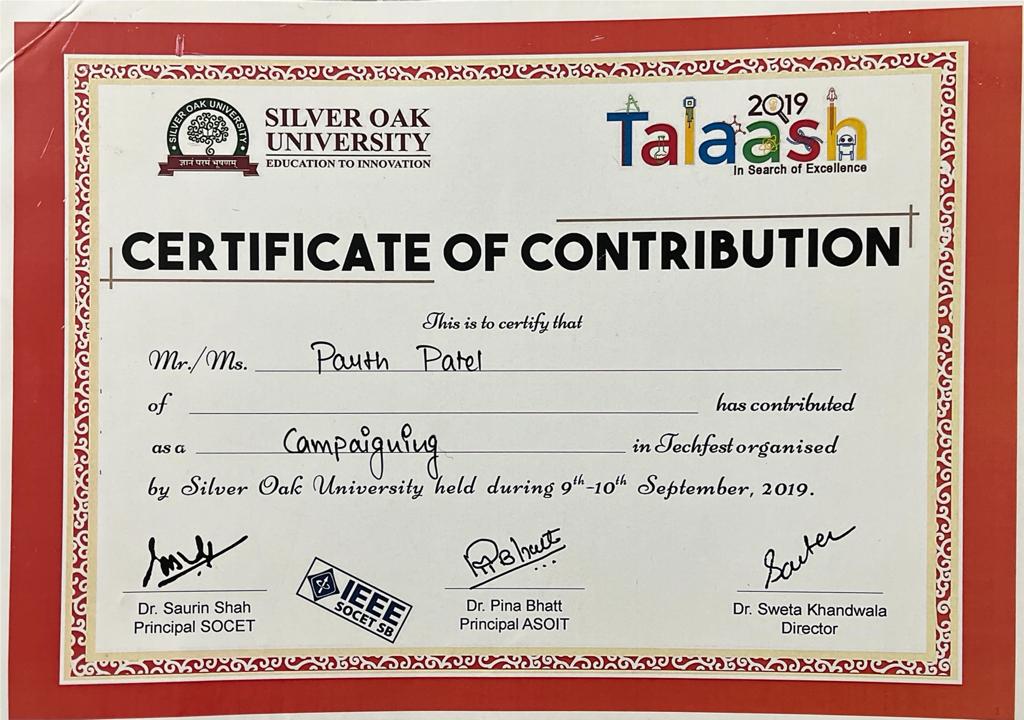 SILVER OAK UNIVERSITY
ज्ञानं परमं भूषणम्
SILVER OAK
UNIVERSITY
EDUCATION TO INNOVATION
2019
Talaash
In Search of Excellence
CERTIFICATE OF CONTRIBUTION
This is to certify that
Mr./Ms. Parth Patel
of has contributed
as a Campaigning in Techfest organised
by Silver Oak University held during 9th-10th September, 2019.
Dr. Saurin Shah
Principal SOCET
IEEE
SOCET SB
Dr. Pina Bhatt
Principal ASOIT
Dr. Sweta Khandwala
Director